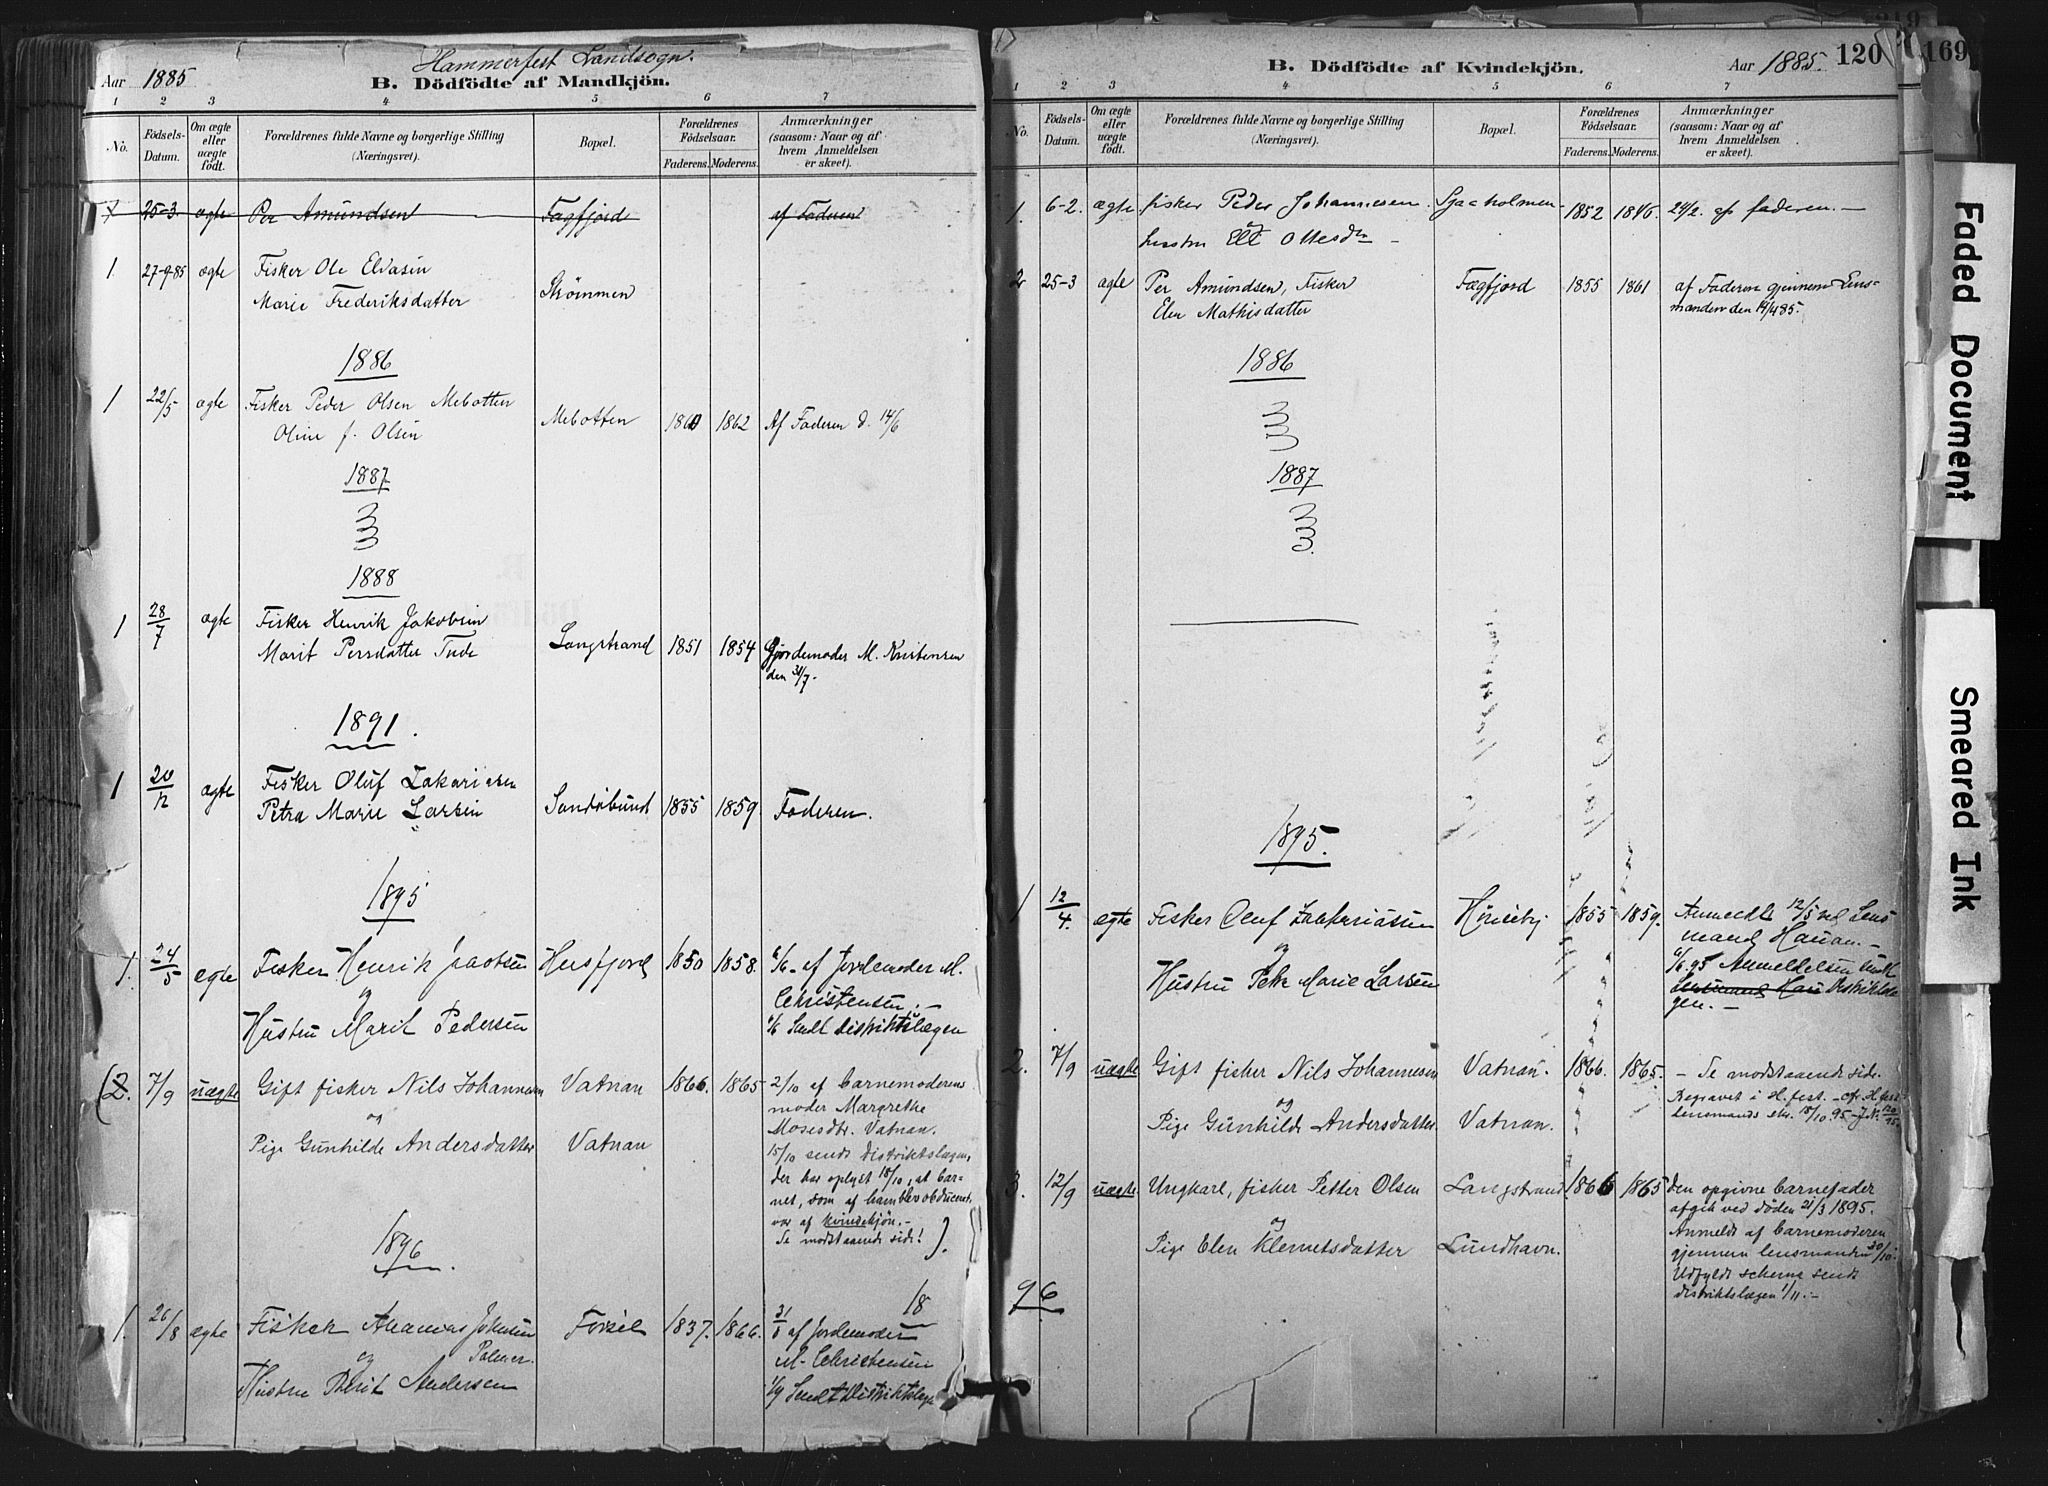 Hammerfest Landsogn.
Aar 1885 B. Dödfödte af Mandkjön.
1 2 3 4 5 6 7
No. Födsels-Datum. Om ægte eller uægte födt. Forældrenes fulde Navne og borgerlige Stilling (Næringsvei). Bopæl. Forældrenes Födselsaar. Faderens. Moderens. Anmærkninger (saasom: Naar og af hvem Anmeldelsen er skeet).
25-3. ægte Per Amundsen Fægfjord af Faderen
1. 27-9-85 ægte Fisker Ole Elvasen
Marie Frederiksdatter Strømmen
1886
1 22/5 ægte Fisker Peder Olsen Mebotten
Oline f. Olsen Mebotten 1860 1862 Af Faderen d. 14/6
1887
1888
1 28/7 ægte Fisker Henrik Jakobsen
Marit Persdatter Langstrand 1851 1854 Gjordemoder M. Kristensen
den 31/7.
1891.
1 20/12 ægte Fisker Oluf Zakariasen
Petra Marie Larsen Sandøbund 1855 1859. Faderen.
1895
1. 24/5 ægte Fisker Henrik Jacobsen 1850 1858. 6/6 af Jordemoder M.
og Christensen.
Hustru Marit Pedersen Sendt Distriktslægen
(2. 7/9 uægte Gift fisker Nils Johannesen Vatnan 1866. 1865 2/10 af barnemoderens
og moder Margrethe
Mosesdtr. Vatnan.
Pige Gunhilde Andersdatter Vatnan 15/10 sendt distriktslægen,
der har oplyst 18/10, at bar-
net, som af ham blev obduceret,
var af kvindekjön.-
Se modstaaende side! ).
1896.
18
1. 26/8 ægte Fisker Johnsen 1837. 1866. 31/8 af Jordemoder
og Palmer. M. Christensen
Hustru Berit Andersen 1/9 Sendt Distriktslægen
B. Dödfödte af Kvindekjön. Aar 1885. 120 169
1 2 3 4 5 6 7
No. Födsels-Datum. Om ægte eller uægte födt. Forældrenes fulde Navne og borgerlige Stilling (Næringsvei). Bopæl. Forældrenes Födselsaar. Faderens. Moderens. Anmærkninger (saasom: Naar og af hvem Anmeldelsen er skeet).
1. 6-2. ægte fisker Peder Johannesen. 1852 1846. 24/2. af faderen.
hustru
2 25-3 ægte Per Amundsen, Fisker Fægfjord 1855 1861 af Faderen gjennem Lens-
Elen Mathisdatter manden den 14/4 85.
1886
1887
1895.
1 12/4. ægte Fisker Oluf Zakariasen 1855 1859. Anmeldt 12/5 ved Lens
og mand Hauan.
Hustru Petra Marie Larsen 6/6 95 Anmeldelsen sendt
Distriktslæ
gen.
2. 7/9 uægte Gift fisker Nils Johannesen Vatnan. 1866. 1865. - Se modstaaende side.
og Begravet i H.fest. - cfr. H.fest
lensmands skr. 18/10. 95
Pige Gunhilde Andersdatter Vatnan.
3. 12/9 uægte. Ungkarl, fisker Petter Olsen Langstrand 1866 1865 Den opgivne barnefader
og afgik ved döden 21/3 1895.
Anmeldt af barnemoderen
Pige Elen Klemetsdatter Lundhavn. gjennem lensmanden 30/10.
Udfyldt schema sendt
distriktslægen 1/11.-
96
Faded Document
Smeared Ink